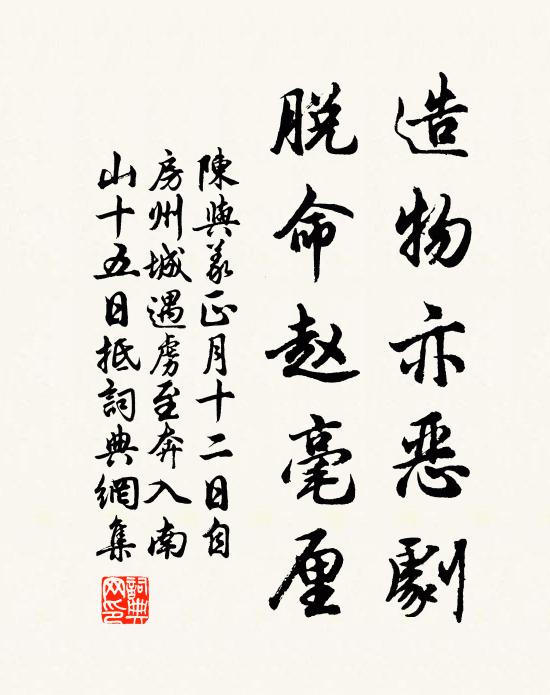 造物亦惡劇
脱命赵毫厘
陳與義正月十二日自
房州城遇虜至奔入南
山十五日抵詞典網集
詞典
网印